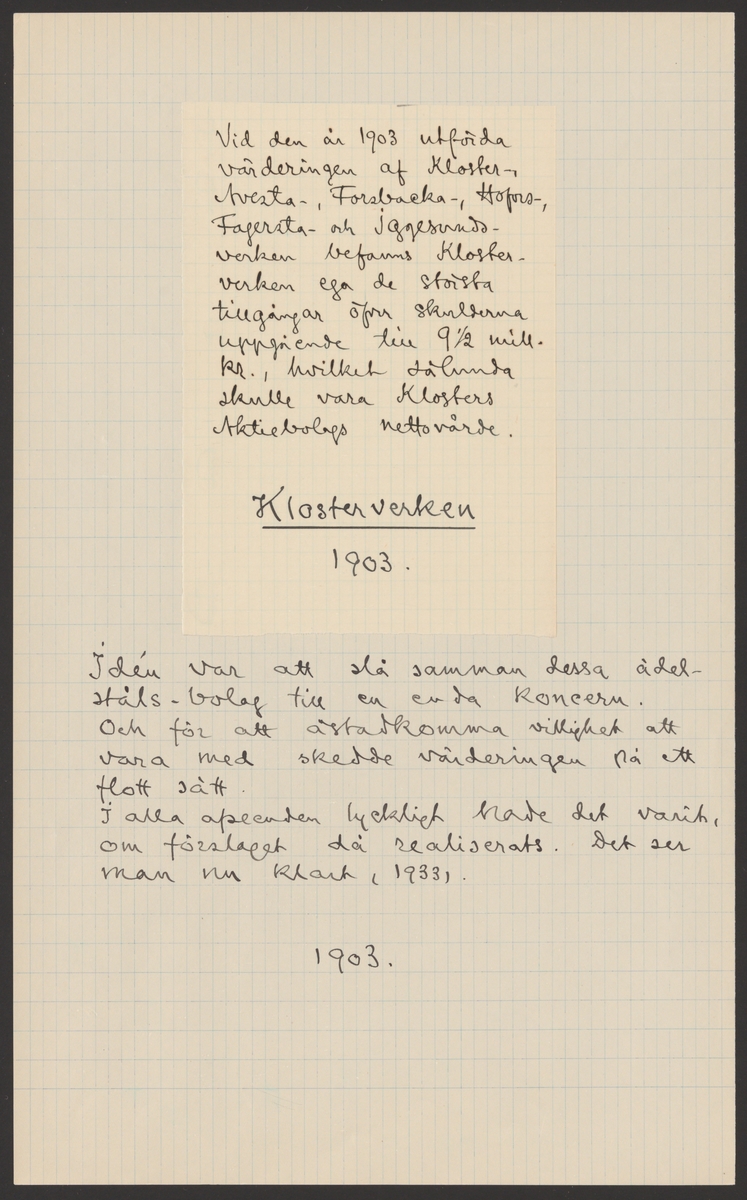 Vid den år 1903 utförda
värderingen af Kloster-,
Avesta-, Forsbacka-, Hofors-,
Fagersta- och Iggesunds-
verken befanns Kloster-
verken ega de största
tillgångar öfver skulderna
uppgående till 9 1/2 mill.
kr., hvilket sålunda
skulle vara Klosters
Aktiebolags nettovärde.
Klosterverken
1903.
Idén var att slå samman dessa ädel-
ståls-bolag till en enda koncern.
Och för att åstadkomma villighet att
vara med skedde värderingen på ett
flott sätt.
I alla afseenden lyckligt hade det varit,
om förslaget då realiserats. Det ser
man nu klart (1933).
1903.